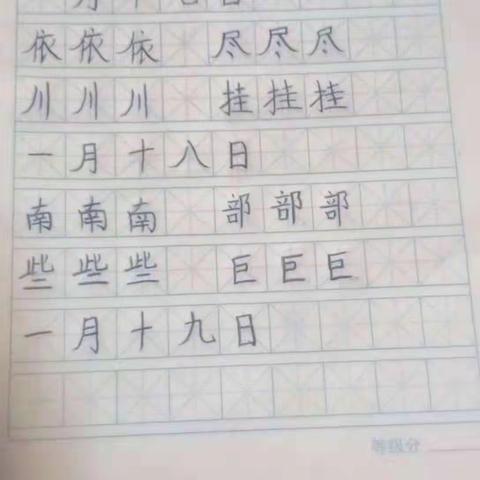 依依依 尽尽尽
川川川 挂挂挂
一月十八日
南南南 部部部
些些些 巨巨巨
一月十九日
等级分